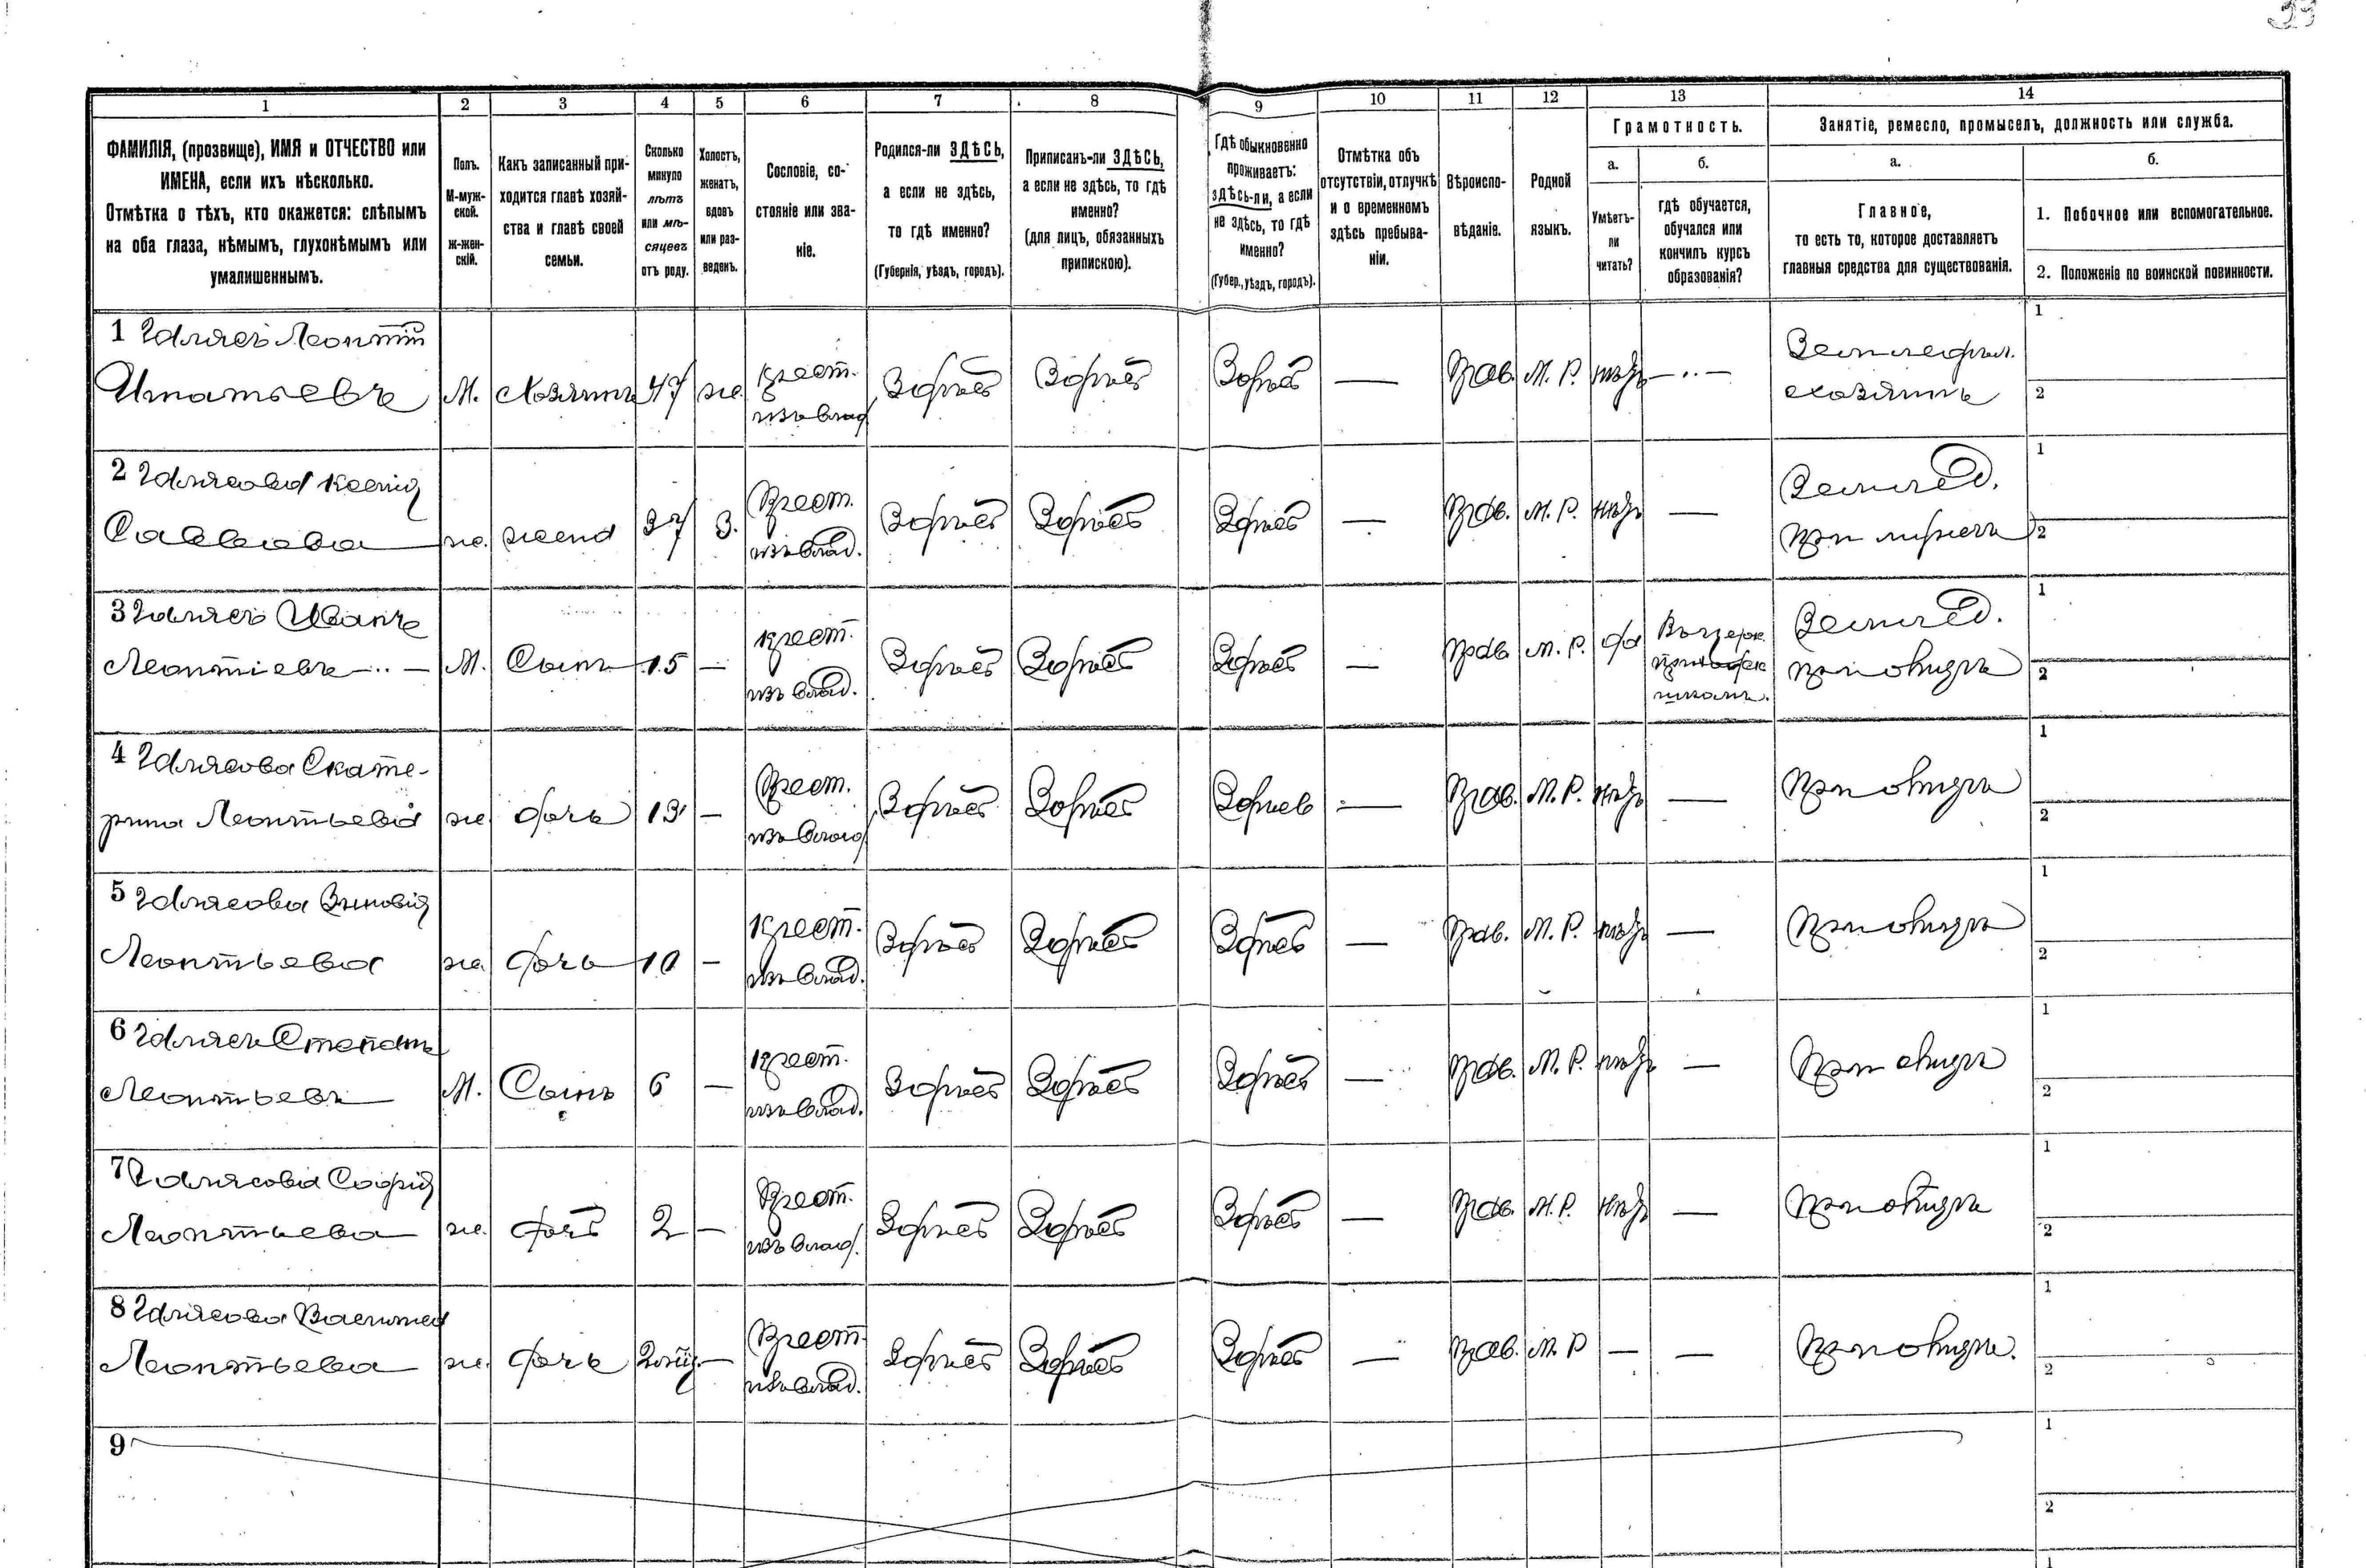 33
1 2 3 4 5 6 7 8 9 10 11 12 13 14
ФАМИЛІЯ, (прозвище), ИМЯ и ОТЧЕСТВО или
ИМЕНА, если ихъ нѣсколько.
Отмѣтка о тѣхъ, кто окажется: слѣпымъ
на оба глаза, нѣмымъ, глухонѣмымъ или
умалишеннымъ.
Полъ.
М-муж-
ской.
Ж-жен-
скій.
Какъ записанный при-
ходится главѣ хозяй-
ства и главѣ своей
семьи.
Сколько
минуло
лѣтъ
или мѣ-
сяцевъ
отъ роду.
Холостъ,
женатъ,
вдовъ
или раз-
веденъ.
Сословіе, со-
стояніе или зва-
ніе.
Родился-ли ЗДѢСЬ,
а если не здѣсь,
то гдѣ именно?
(Губернія, уѣздъ, городъ).
Приписанъ-ли ЗДѢСЬ,
а если не здѣсь, то гдѣ
именно?
(для лицъ, обязанныхъ
припискою).
Гдѣ обыкновенно
проживаетъ:
здѣсь-ли, а если
не здѣсь, то гдѣ
именно?
(Губер., уѣздъ, городъ).
Отмѣтка объ
отсутствіи, отлучкѣ
и о временномъ
здѣсь пребыва-
ніи.
Вѣроиспо-
вѣданіе.
Родной
языкъ.
Грамотность.
а.
Умѣетъ-
ли
читать?
б.
гдѣ обучается,
обучался или
кончилъ курсъ
образованія?
Занятіе, ремесло, промыселъ, должность или служба.
а.
Главное,
то есть то, которое доставляетъ
главныя средства для существованія.
б.
1. Побочное или вспомогательное.
2. Положеніе по воинской повинности.
1 Леонтій
Игнатьевъ М. Хозяинъ 47 ж. крест. изъ влад. Здѣсь Здѣсь Здѣсь — Прав. М. Р. нѣтъ — Землед. хозяинъ 1 2
2 Ксенія
Саввова ж. жена 37 З. Крест. изъ влад. Здѣсь Здѣсь Здѣсь — Прав. М. Р. нѣтъ — Землед. при мужѣ 1 2
3 Иванъ
Леонтіевъ М. Сынъ 15 — крест. изъ влад. Здѣсь Здѣсь Здѣсь — Прав. М. Р. да школѣ. Землед. при отцѣ 1 2
4 Екате-
рина Леонтьева ж. дочь 13 — Крест. изъ влад. Здѣсь Здѣсь Здѣсь — Прав. М. Р. нѣтъ — при отцѣ 1 2
5 Зиновія
Леонтьева ж. дочь 10 — крест. изъ влад. Здѣсь Здѣсь Здѣсь — Прав. М. Р. нѣтъ — при отцѣ 1 2
6 Степанъ
Леонтьевъ М. Сынъ 6 — крест. изъ влад. Здѣсь Здѣсь Здѣсь — Прав. М. Р. нѣтъ — при отцѣ 1 2
7 Софія
Леонтьева ж. дочь 2 — Крест. изъ влад. Здѣсь Здѣсь Здѣсь — Прав. М. Р. нѣтъ — при отцѣ 1 2
8
Леонтьева ж. дочь Крест. изъ влад. Здѣсь Здѣсь Здѣсь — Прав. М. Р — — при отцѣ. 1 2
9 1 2
1